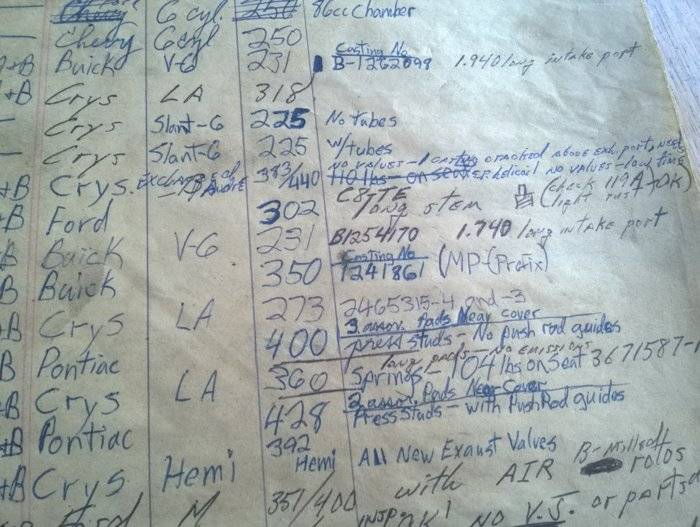 Chevy 6 cyl. 250 86cc Chamber
Chevy 6cyl 250
+B Buick V-6 231 Casting No B-1262098 1.940 long intake port
+B Crys LA 318
— Crys Slant-6 225 No tubes
— Crys Slant-6 225 w/tubes
+B Crys. 383/440 No valves - 1 cracked above exh. port, need
110 lbs - on seat No valves - low time
+B Ford 302 C8TTE long stem (Check 119A) OK light rust
B Buick V-6 231 B1254170 1.740 long intake port
B Buick 350 Casting No 1241861 (MP-(Prefix)
+B Crys LA 273 2465315-4 and -3
B Pontiac 400 3 assor. Pads Near cover
press studs - No push rod guides
long No Emissions
+B Crys LA 360 Springs - 104 lbs on seat 3671587-
+B Pontiac 428 2 assor. Pads Near Cover
Press Studs - with PushRod guides
+B Crys Hemi 392 Hemi All New Exaust Valves
Ford M 351/400 with AIR
OK! NO V.J. or parts